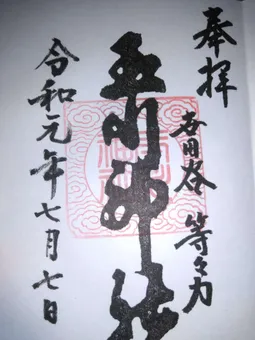 奉拝
世田谷 等々力
玉川神社
令和元年七月七日